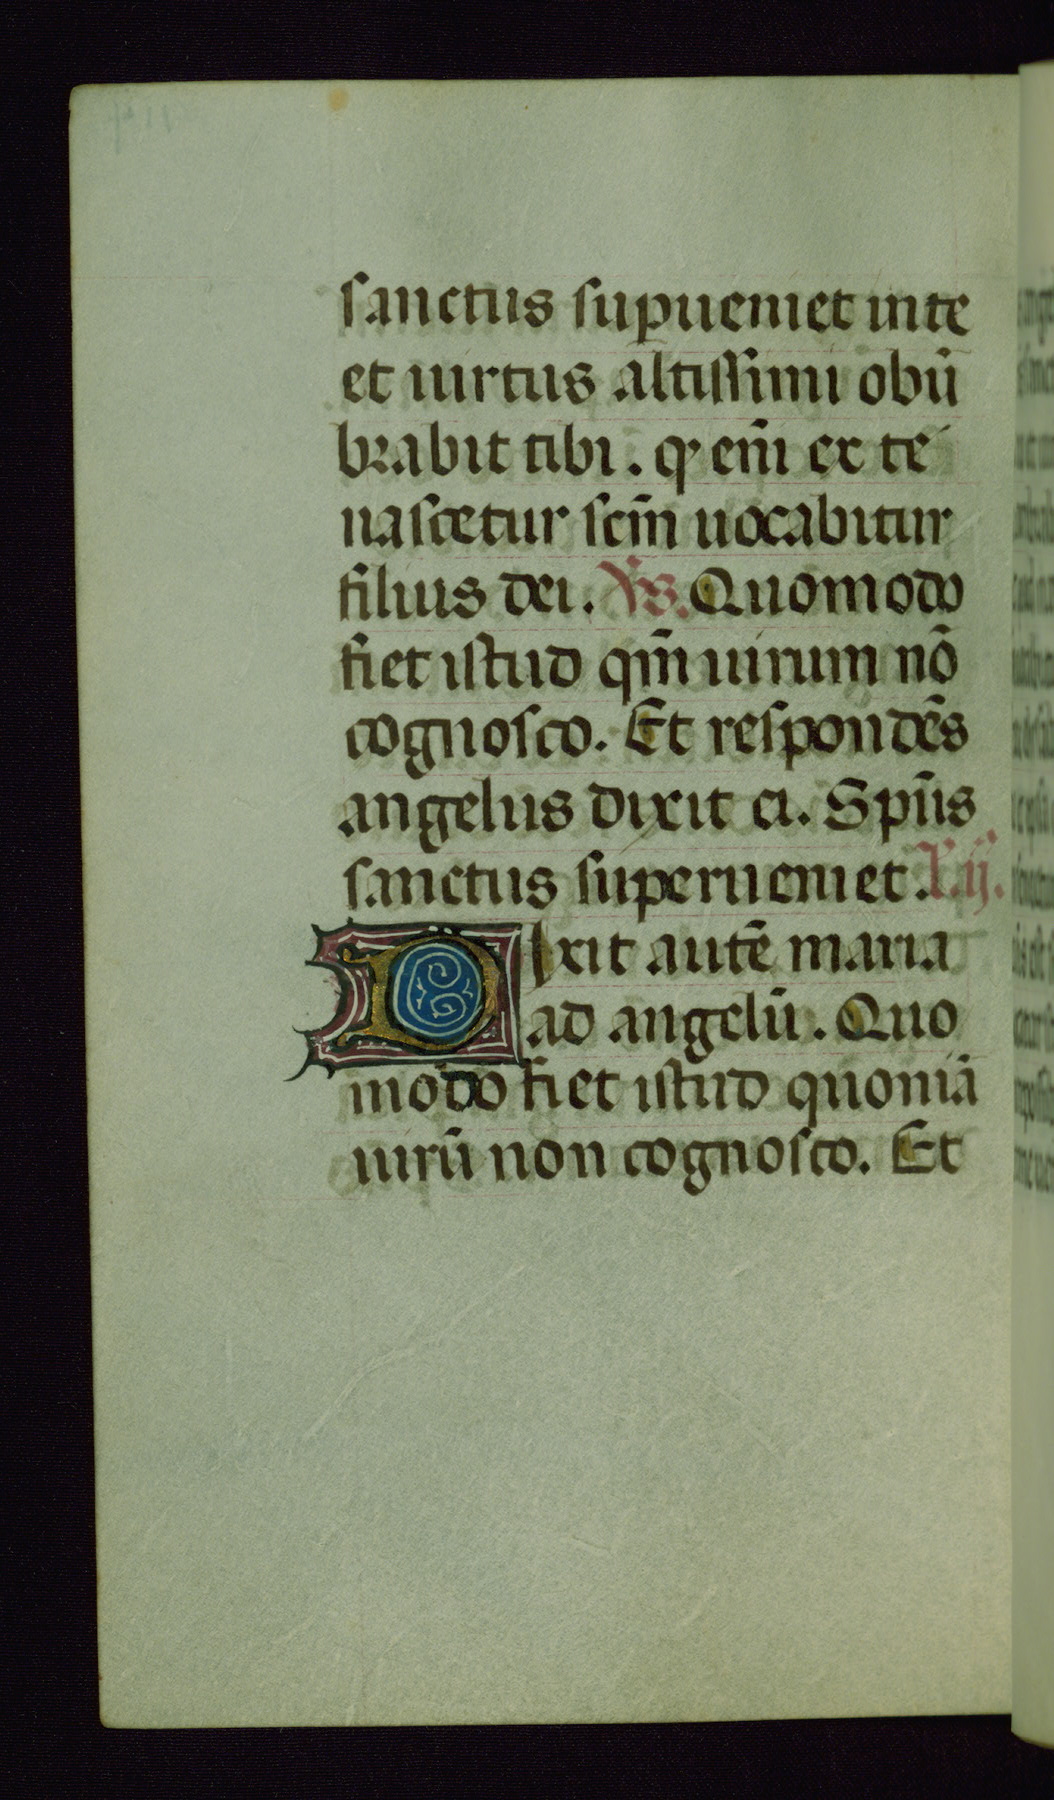 sanctus sup̱ueniet in te
et uirtus altissimi obū
brabit tibi. q̛ em̄ ex te
nascetur scm̄ uocabitur
filius dei. V̄s. Quomodo
fiet istud qm̄ uirum nō
cognosco. Et respondēs
angelus dixit ei. Spūs
sanctus superueniet.
Dixit autē maria
ad angelū. Quo
modo fiet istud quoniā
uirū non cognosco. Et